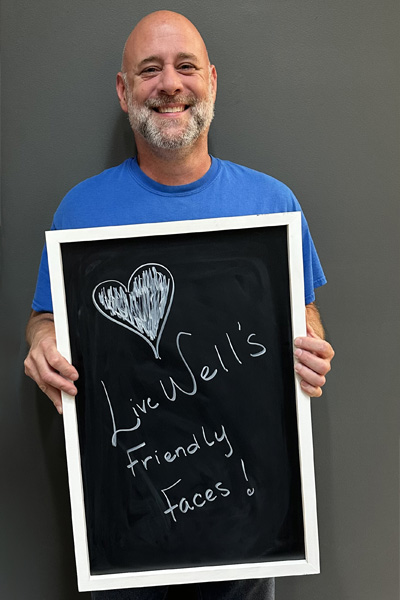 LiveWell's
Friendly
Faces!